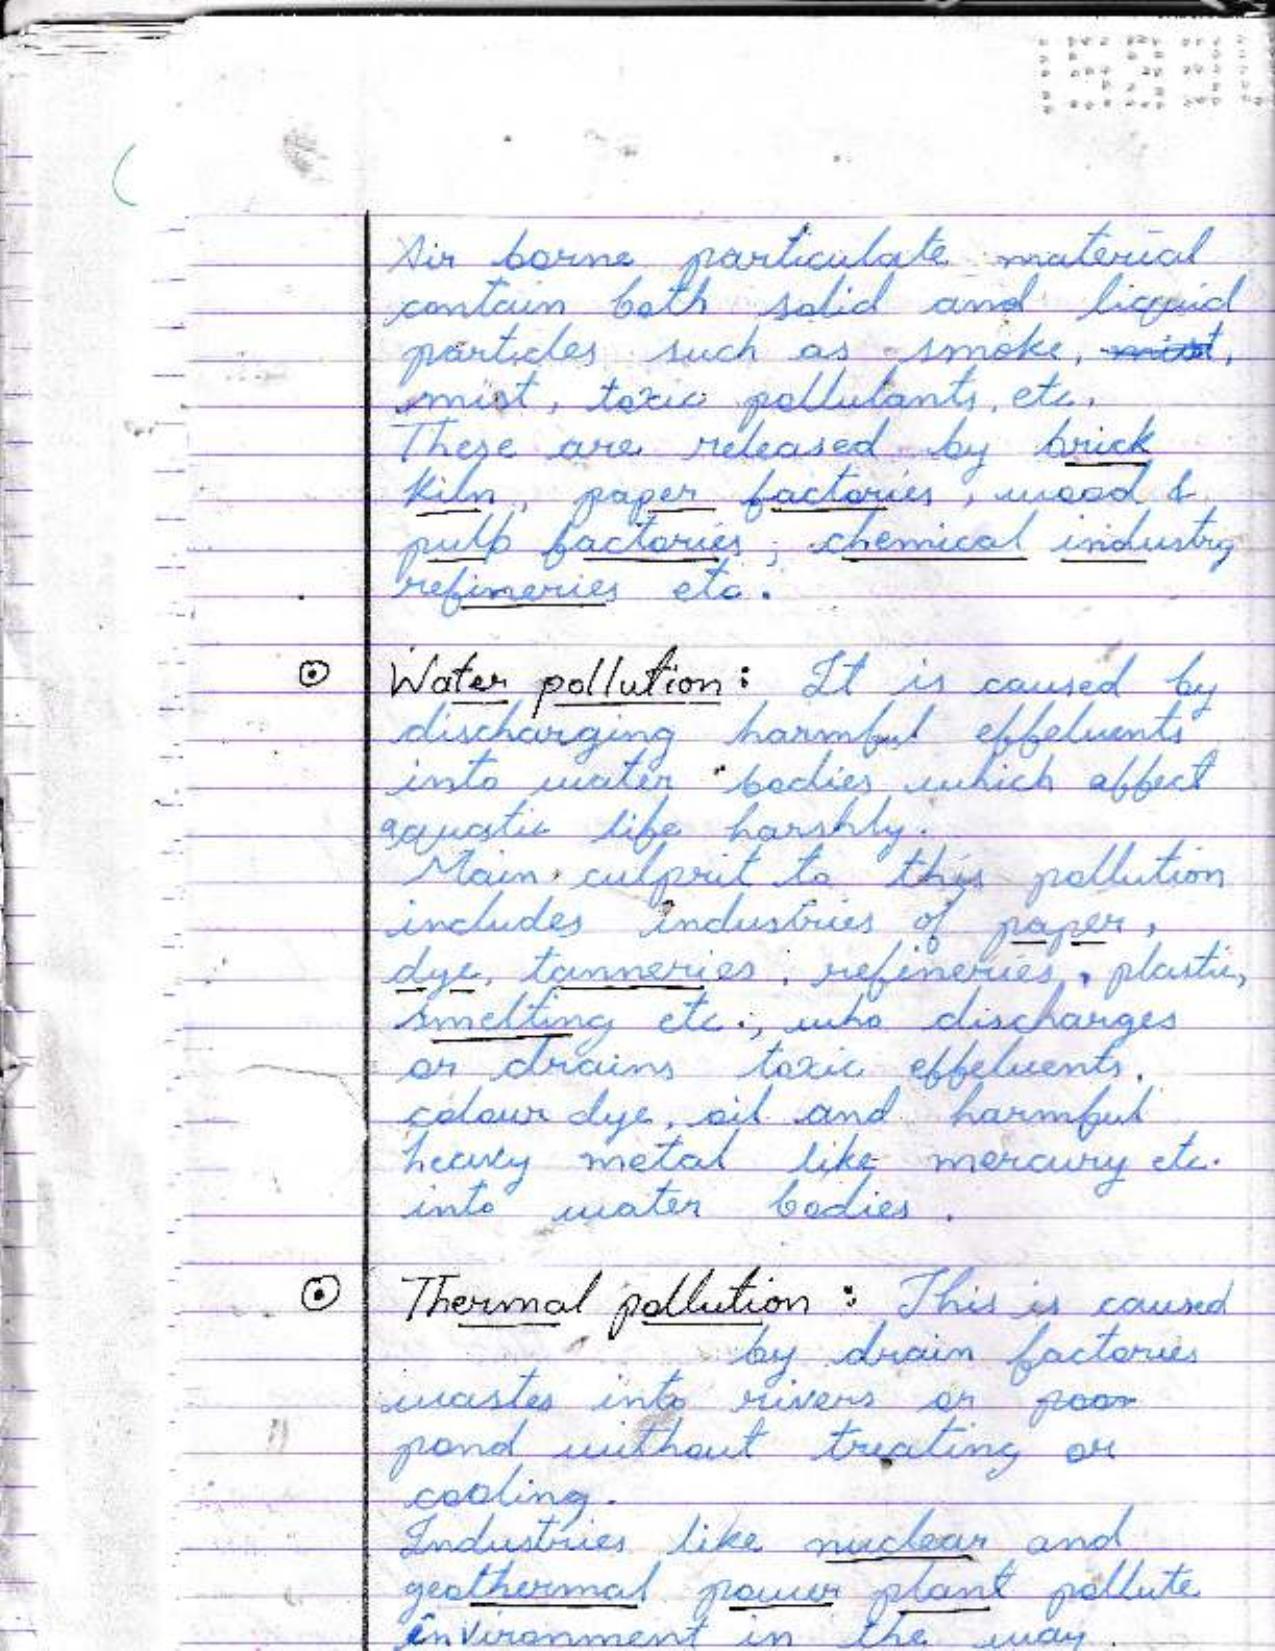 Air borne particulate material
contain both solid and liquid
particles such as smoke, mist,
mist, toxic pollutants, etc.
These are released by brick
kiln, paper factories, wood &
pulp factories, chemical industry
refineries etc.
Water pollution: It is caused by
discharging harmful effeluents
into water bodies which affect
aquatic life harshly.
Main culprit to this pollution
includes industries of paper,
dye, tanneries, refineries, plastic,
smelting etc., who discharges
or drains toxic effeluents,
colour dye, oil and harmful
heavy metal like mercury etc.
into water bodies.
Thermal pollution: This is caused
by drain factories
wastes into rivers or poor
pond without treating or
cooling.
Industries like nuclear and
geothermal power plant pollute
environment in the way.